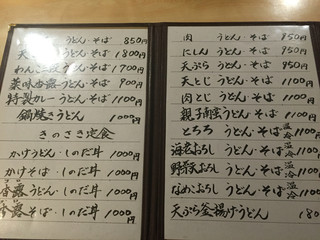 うどん・そば 850円
うどん・そば 1800円
うどん・そば 1700円
薬味香露 うどん・そば 900円
特製カレー うどん・そば 1100円
鍋焼きうどん 1100円
きのさき定食
かけうどん・しのだ丼 1000円
かけそば・しのだ丼 1000円
香露うどん・しのだ丼 1000円
香露そば・しのだ丼 1000円
肉 うどん・そば 950円
にしん うどん・そば 950円
天ぷら うどん・そば 950円
天とじ うどん・そば 1100円
肉とじ うどん・そば 1100円
親子南蛮 うどん・そば 1100円
とろろ うどん・そば 温冷 1100円
海老おろし うどん・そば 温冷 1100円
野菜天おろし うどん・そば 温冷 1100円
なめこおろし うどん・そば 温冷 1100円
天ぷら釜揚げうどん 180